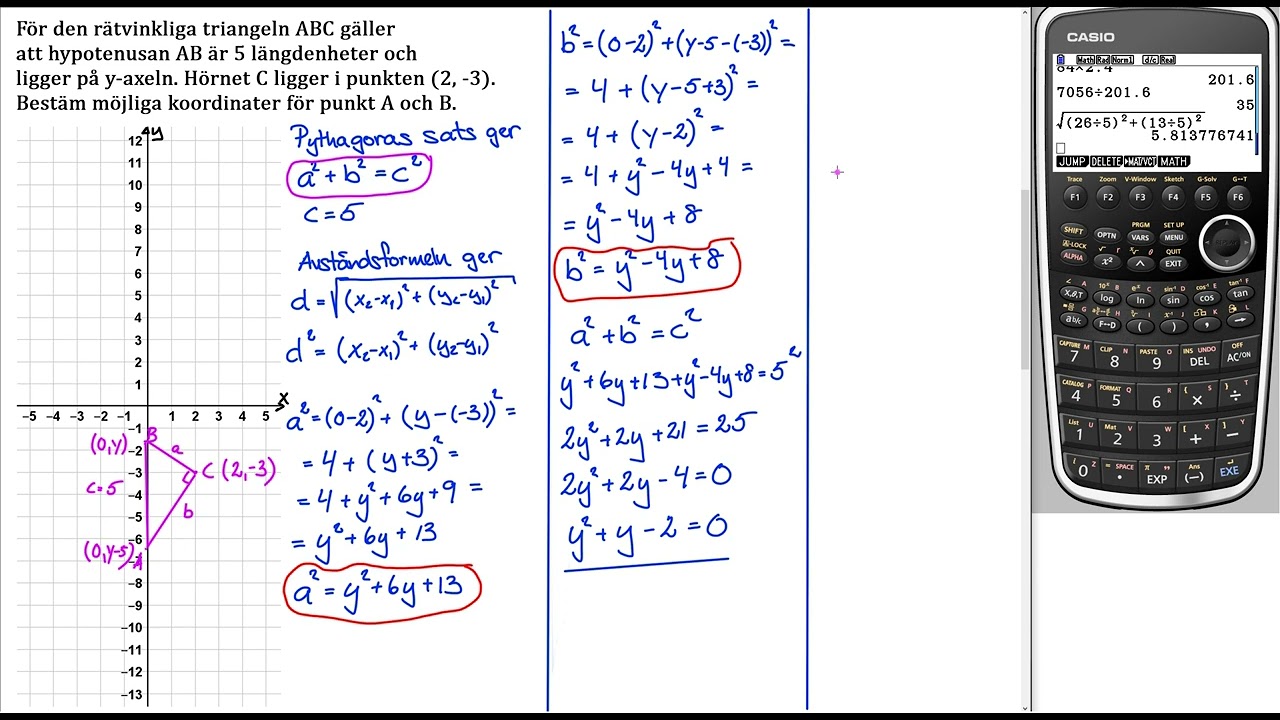 För den rätvinkliga triangeln ABC gäller
att hypotenusan AB är 5 längdenheter och
ligger på y-axeln. Hörnet C ligger i punkten (2, -3).
Bestäm möjliga koordinater för punkt A och B.
y
12
11
10
9
8
7
6
5
4
3
2
1
x
-5 -4 -3 -2 -1 1 2 3 4 5
-1
-2
-3
-4
-5
-6
-7
-8
-9
-10
-11
-12
-13
(0,y) B
a
C (2,-3)
c=5
b
(0,y-5) A
Pythagoras sats ger
a² + b² = c²
c = 5
Avståndsformeln ger
d = √((x₂-x₁)² + (y₂-y₁)²)
d² = (x₂-x₁)² + (y₂-y₁)²
a² = (0-2)² + (y-(-3))² =
= 4 + (y+3)² =
= 4 + y² + 6y + 9 =
= y² + 6y + 13
a² = y² + 6y + 13
b² = (0-2)² + (y-5-(-3))² =
= 4 + (y-5+3)² =
= 4 + (y-2)² =
= 4 + y² - 4y + 4 =
= y² - 4y + 8
b² = y² - 4y + 8
a² + b² = c²
y² + 6y + 13 + y² - 4y + 8 = 5²
2y² + 2y + 21 = 25
2y² + 2y - 4 = 0
y² + y - 2 = 0
CASIO
Math Rad Norm1 d/c Real
84×2.4
201.6
7056÷201.6
35
√((26÷5)²+(13÷5)²)
5.813776741
JUMP DELETE ▶MAT/VCT MATH
Trace Zoom V-Window Sketch G-Solv G↔T
F1 F2 F3 F4 F5 F6
PRGM SET UP
SHIFT OPTN VARS MENU
A-LOCK QUIT
ALPHA x² ^ EXIT
X,θ,T log ln sin cos tan
ab/c F↔D ( ) , →
CAPTURE M CLIP N PASTE O INS UNDO OFF
7 8 9 DEL AC/ON
CATALOG P FORMAT Q R { S } T
4 5 6 × ÷
List U Mat V W [ X ] Y
1 2 3 + −
i Z = SPACE π " Ans
0 . EXP (−) EXE